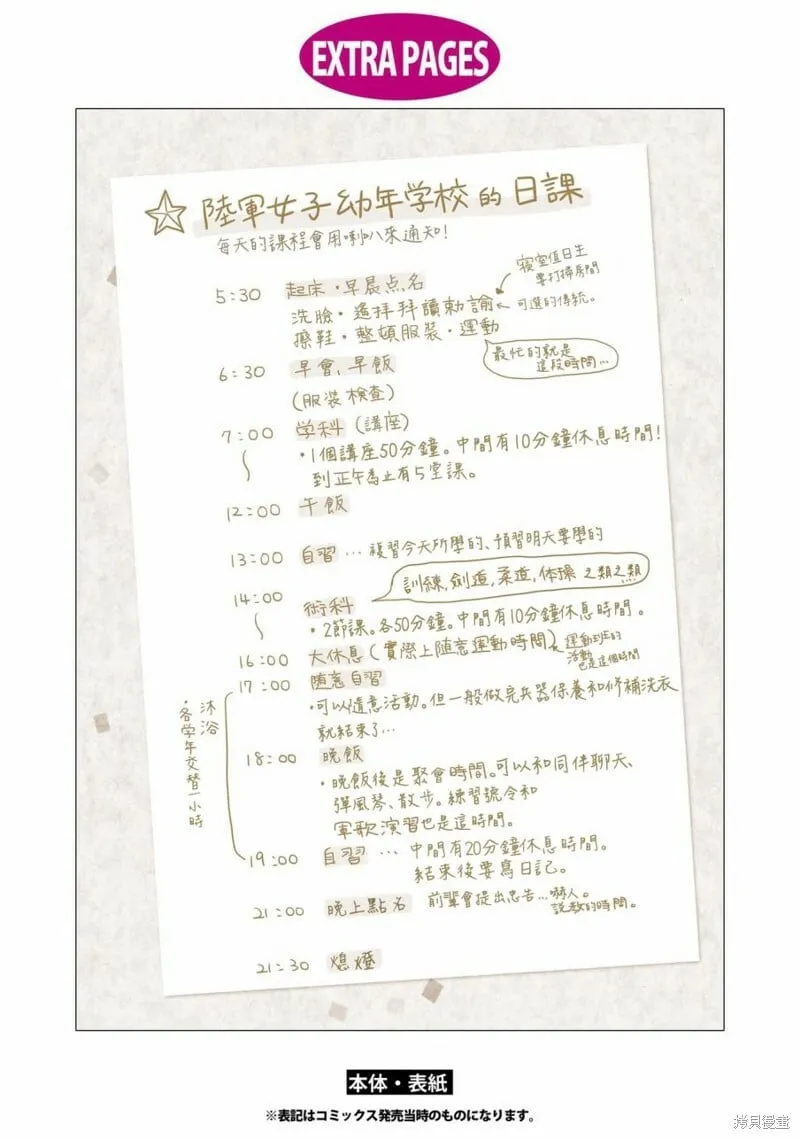 EXTRA PAGES
陸軍女子幼年学校的日課
每天的課程會用喇叭來通知!
寢室值日生
要打掃房間
5:30 起床・早晨点名
洗臉・遙拜拜讀勅諭 可選的傳統。
擦鞋・整頓服裝・運動
最忙的就是
這段時間…
6:30 早會,早飯
(服裝檢查)
7:00 学科(講座)
・1個講座50分鐘。中間有10分鐘休息時間!
到正午為止有5堂課。
12:00 午飯
13:00 自習…複習今天所學的、預習明天要學的
訓練,劍道,柔道,体操 之類之類
14:00 術科
・2節課。各50分鐘。中間有10分鐘休息時間。
16:00 大休息(實際上随意運動時間) 運動到生的
活動
也是這個時間
17:00 随意自習
・可以隨意活動。但一般做完兵器保養和修補洗衣
就結束了…
沐浴
・各学年交替一小時
18:00 晚飯
・晚飯後是聚會時間。可以和同伴聊天、
彈風琴、散步。練習號令和
軍歌演習也是這時間。
19:00 自習… 中間有20分鐘休息時間。
結束後要寫日記。
21:00 晚上點名 前輩會提出忠告…嚇人。
説教的時間。
21:30 熄燈
本体・表紙
※表記はコミックス発売当時のものになります。
拷貝漫畫